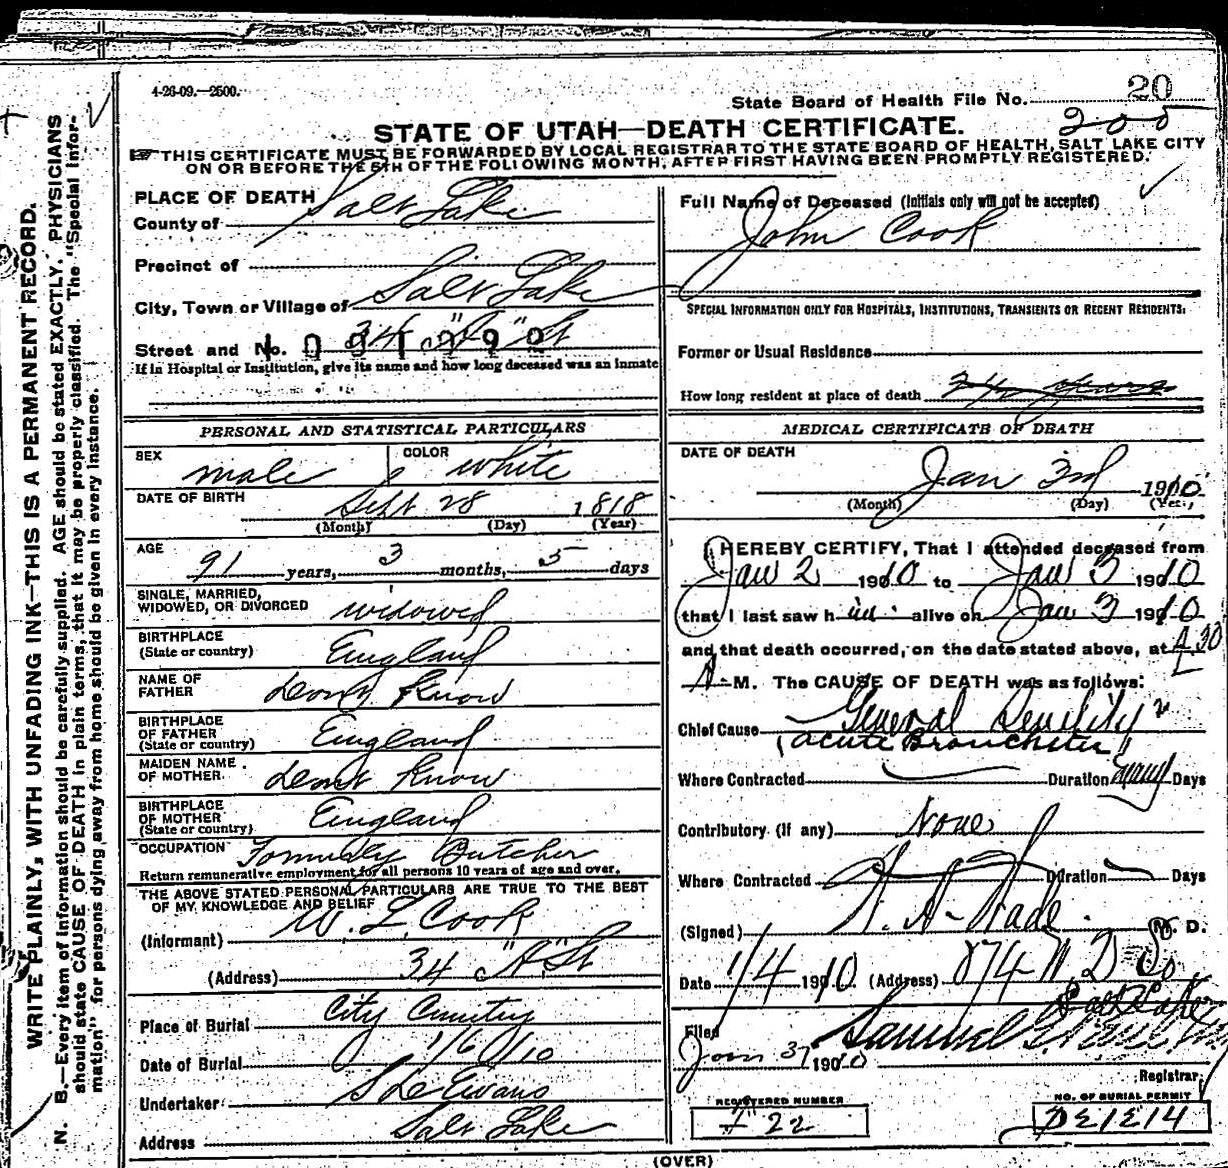 4-26-09.—2500.
20
State Board of Health File No.
200
STATE OF UTAH—DEATH CERTIFICATE.
THIS CERTIFICATE MUST BE FORWARDED BY LOCAL REGISTRAR TO THE STATE BOARD OF HEALTH, SALT LAKE CITY
ON OR BEFORE THE 5TH OF THE FOLLOWING MONTH, AFTER FIRST HAVING BEEN PROMPTLY REGISTERED.
WRITE PLAINLY, WITH UNFADING INK—THIS IS A PERMANENT RECORD.
N. B.—Every item of information should be carefully supplied. AGE should be stated EXACTLY. PHYSICIANS
should state CAUSE OF DEATH in plain terms, that it may be properly classified. The "Special Infor-
mation" for persons dying away from home should be given in every instance.
PLACE OF DEATH
County of Salt Lake
Precinct of
City, Town or Village of Salt Lake
Street and No. 34 "A" St
If in Hospital or Institution, give its name and how long deceased was an inmate
PERSONAL AND STATISTICAL PARTICULARS
SEX male COLOR white
DATE OF BIRTH Sept 28 1818
(Month) (Day) (Year)
AGE 91 years, 3 months, 5 days
SINGLE, MARRIED,
WIDOWED, OR DIVORCED widowed
BIRTHPLACE
(State or country) England
NAME OF
FATHER Dont Know
BIRTHPLACE
OF FATHER
(State or country) England
MAIDEN NAME
OF MOTHER Dont Know
BIRTHPLACE
OF MOTHER
(State or country) England
OCCUPATION Formerly Butcher
Return remunerative employment for all persons 10 years of age and over.
THE ABOVE STATED PERSONAL PARTICULARS ARE TRUE TO THE BEST
OF MY KNOWLEDGE AND BELIEF
(Informant) W. L. Cook
(Address) 34 "A" St
Place of Burial City Cemetery
Date of Burial 1/6/10
Undertaker S D Evans
Address Salt Lake
Full Name of Deceased (Initials only will not be accepted)
John Cook
SPECIAL INFORMATION ONLY FOR HOSPITALS, INSTITUTIONS, TRANSIENTS OR RECENT RESIDENTS.
Former or Usual Residence
How long resident at place of death 34 years
MEDICAL CERTIFICATE OF DEATH
DATE OF DEATH
Jan 3rd 1910
(Month) (Day) (Year)
I HEREBY CERTIFY, That I attended deceased from
Jan 2 1910 to Jan 3 1910
that I last saw him alive on Jan 3 1910
and that death occurred, on the date stated above, at 4.30
A M. The CAUSE OF DEATH was as follows:
Chief Cause General Senility
(acute Bronchitis)
Where Contracted Duration many Days
Contributory (if any) None
Where Contracted Duration Days
(Signed) Wade M. D.
Date 1/4 1910 (Address) 874
Salt Lake
Filed
Jan 3/ 1910 Samuel G.
Registrar
REGISTERED NUMBER
22
NO. OF BURIAL PERMIT
(OVER)